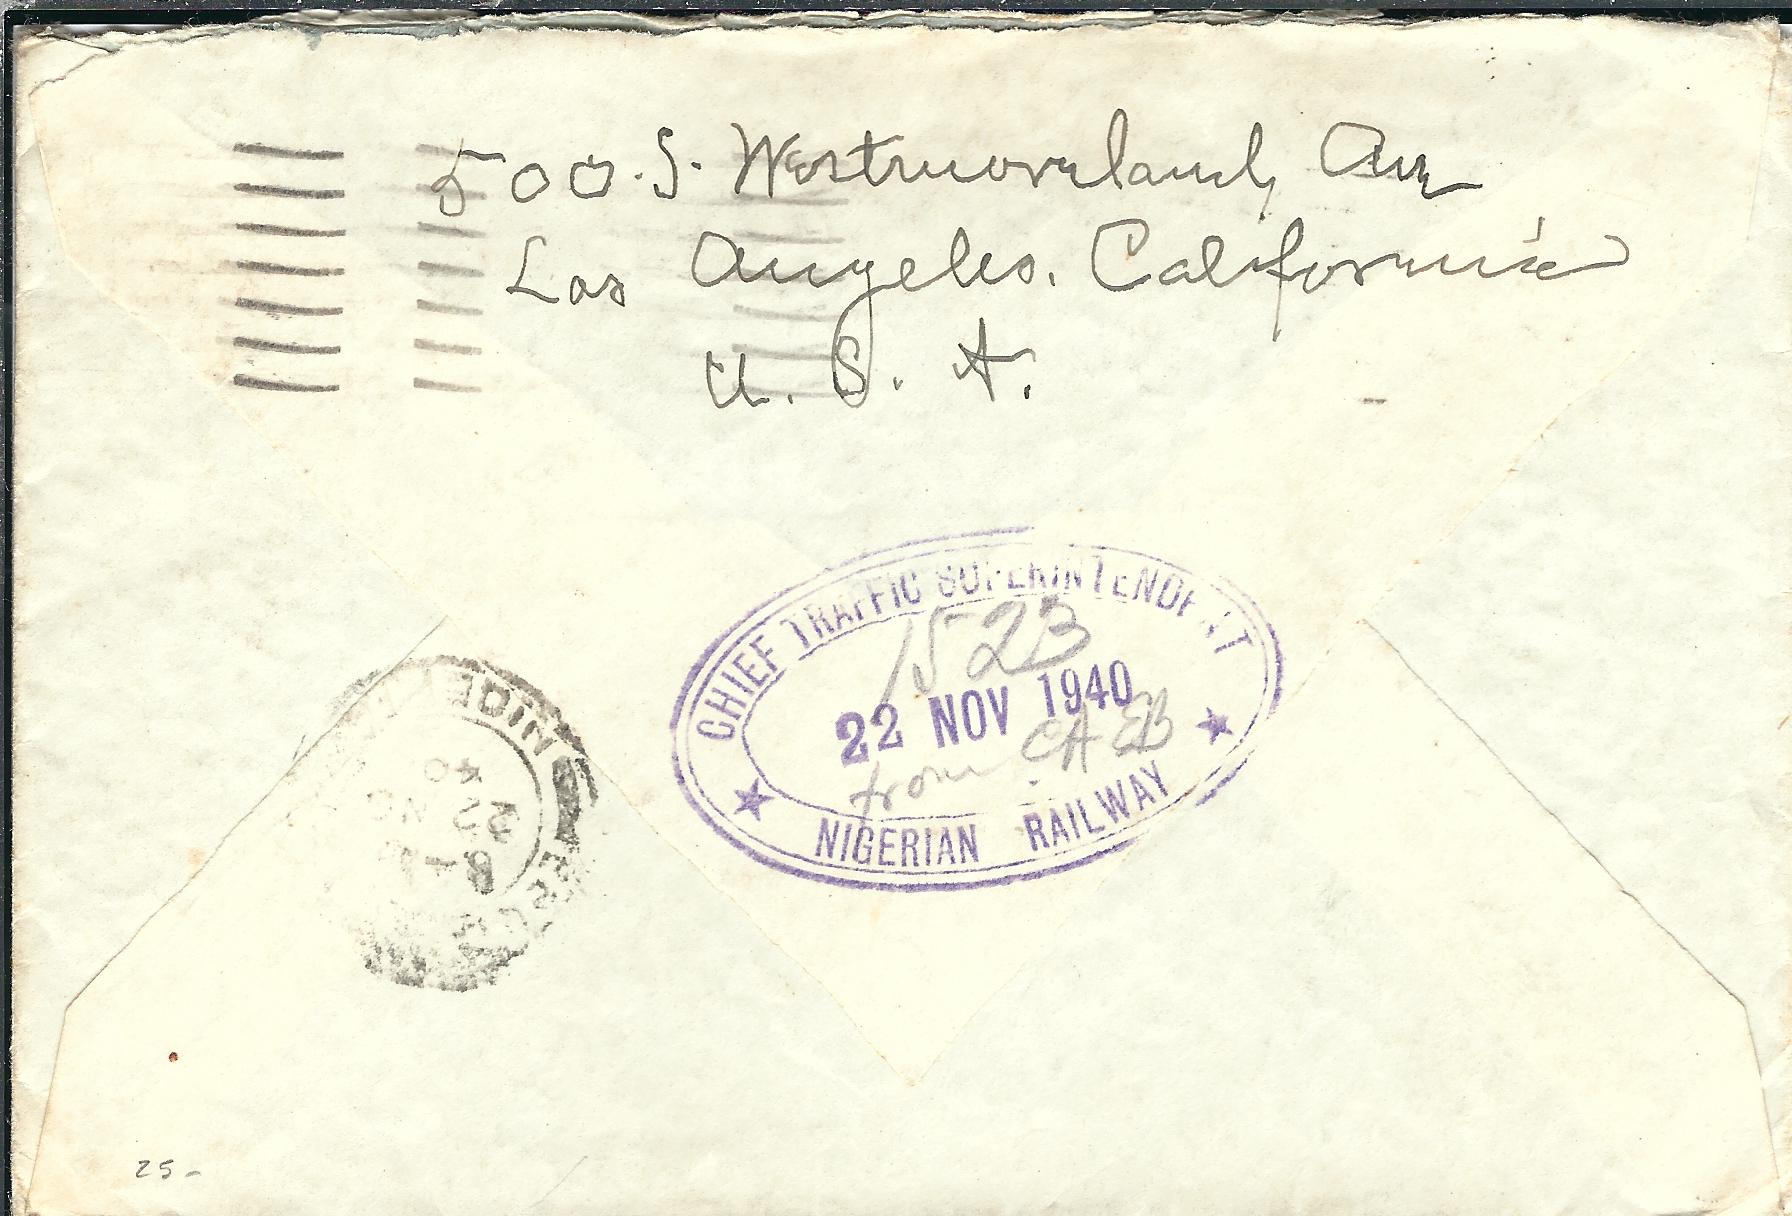 500. S. Westmoreland, Ave
Los Angeles. California
U. S. A.
CHIEF TRAFFIC SUPERINTENDENT
1523
22 NOV 1940
from CA EB
NIGERIAN RAILWAY
22 NO
40
25-